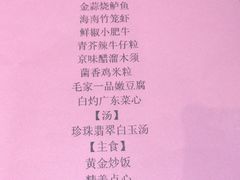 金蒜烧鲈鱼
海南竹笼虾
鲜椒小肥牛
青芥辣牛仔粒
京味醋溜木须
菌香鸡米粒
毛家一品嫩豆腐
白灼广东菜心
【汤】
珍珠翡翠白玉汤
【主食】
黄金炒饭
精美点心